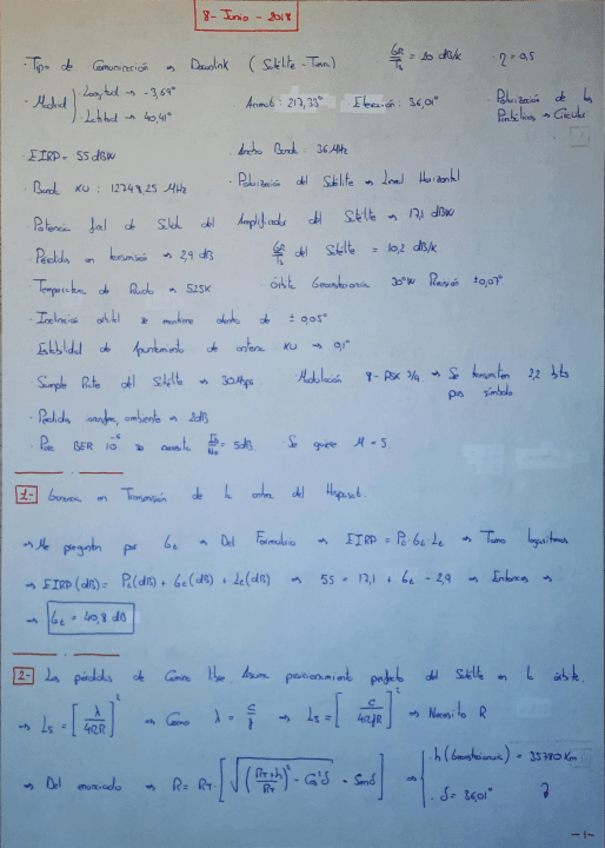 8 - Junio - 2018
· Tipo de Comunicación → Downlink (Satélite - Tierra) GR/Ts = 20 dB/K · η = 0,5
· Madrid } · Longitud → -3,69° · Latitud → 40,41° · Azimut: 217,33° · Elevación: 36,01° · Polarización de las Parabólicas → Circular
· EIRP = 55 dBW · Ancho Banda: 36 MHz
· Banda KU: 12748,25 MHz · Polarización del Satélite → Lineal Horizontal
· Potencia final de Salida del Amplificador del Satélite → 17,1 dBW
· Pérdidas en transmisión → 2,9 dB GR/Ts del Satélite = 10,2 dB/K
· Temperatura de Ruido → 525K · Órbita Geoestacionaria 30°W Precisión ±0,07°
· Inclinación orbital se mantiene dentro de ± 0,05°
· Estabilidad de Apuntamiento de antena KU → 0,1°
· Sample Rate del Satélite → 30Mbps · Modulación 8-PSK 3/4 → Se transmiten 2,2 bits por símbolo
· Pérdidas ambiente → 2dB
· Para BER 10⁻⁶ se necesita Eb/No = 5dB. · Se quiere M = 5.
1.- Ganancia en Transmisión de la antena del Hispasat.
→ Me preguntan por Gt → Del Formulario → EIRP = Pt·Gt·Lt → Tomo logaritmos
→ EIRP(dB) = Pt(dB) + Gt(dB) + Lt(dB) → 55 = 17,1 + Gt - 2,9 → Entonces →
→ Gt = 40,8 dB
2.- Las pérdidas de Camino libre. Asuma posicionamiento perfecto del Satélite en la órbita.
→ Ls = [λ/4πR]² → Como λ = c/f → Ls = [c/4πfR]² → Necesito R
→ Del enunciado → R = RT·[√((RT+h)/RT)² - Cos²δ - Senδ] → { · h (Geoestacionaria) = 35780 Km · δ = 36,01°
-1-